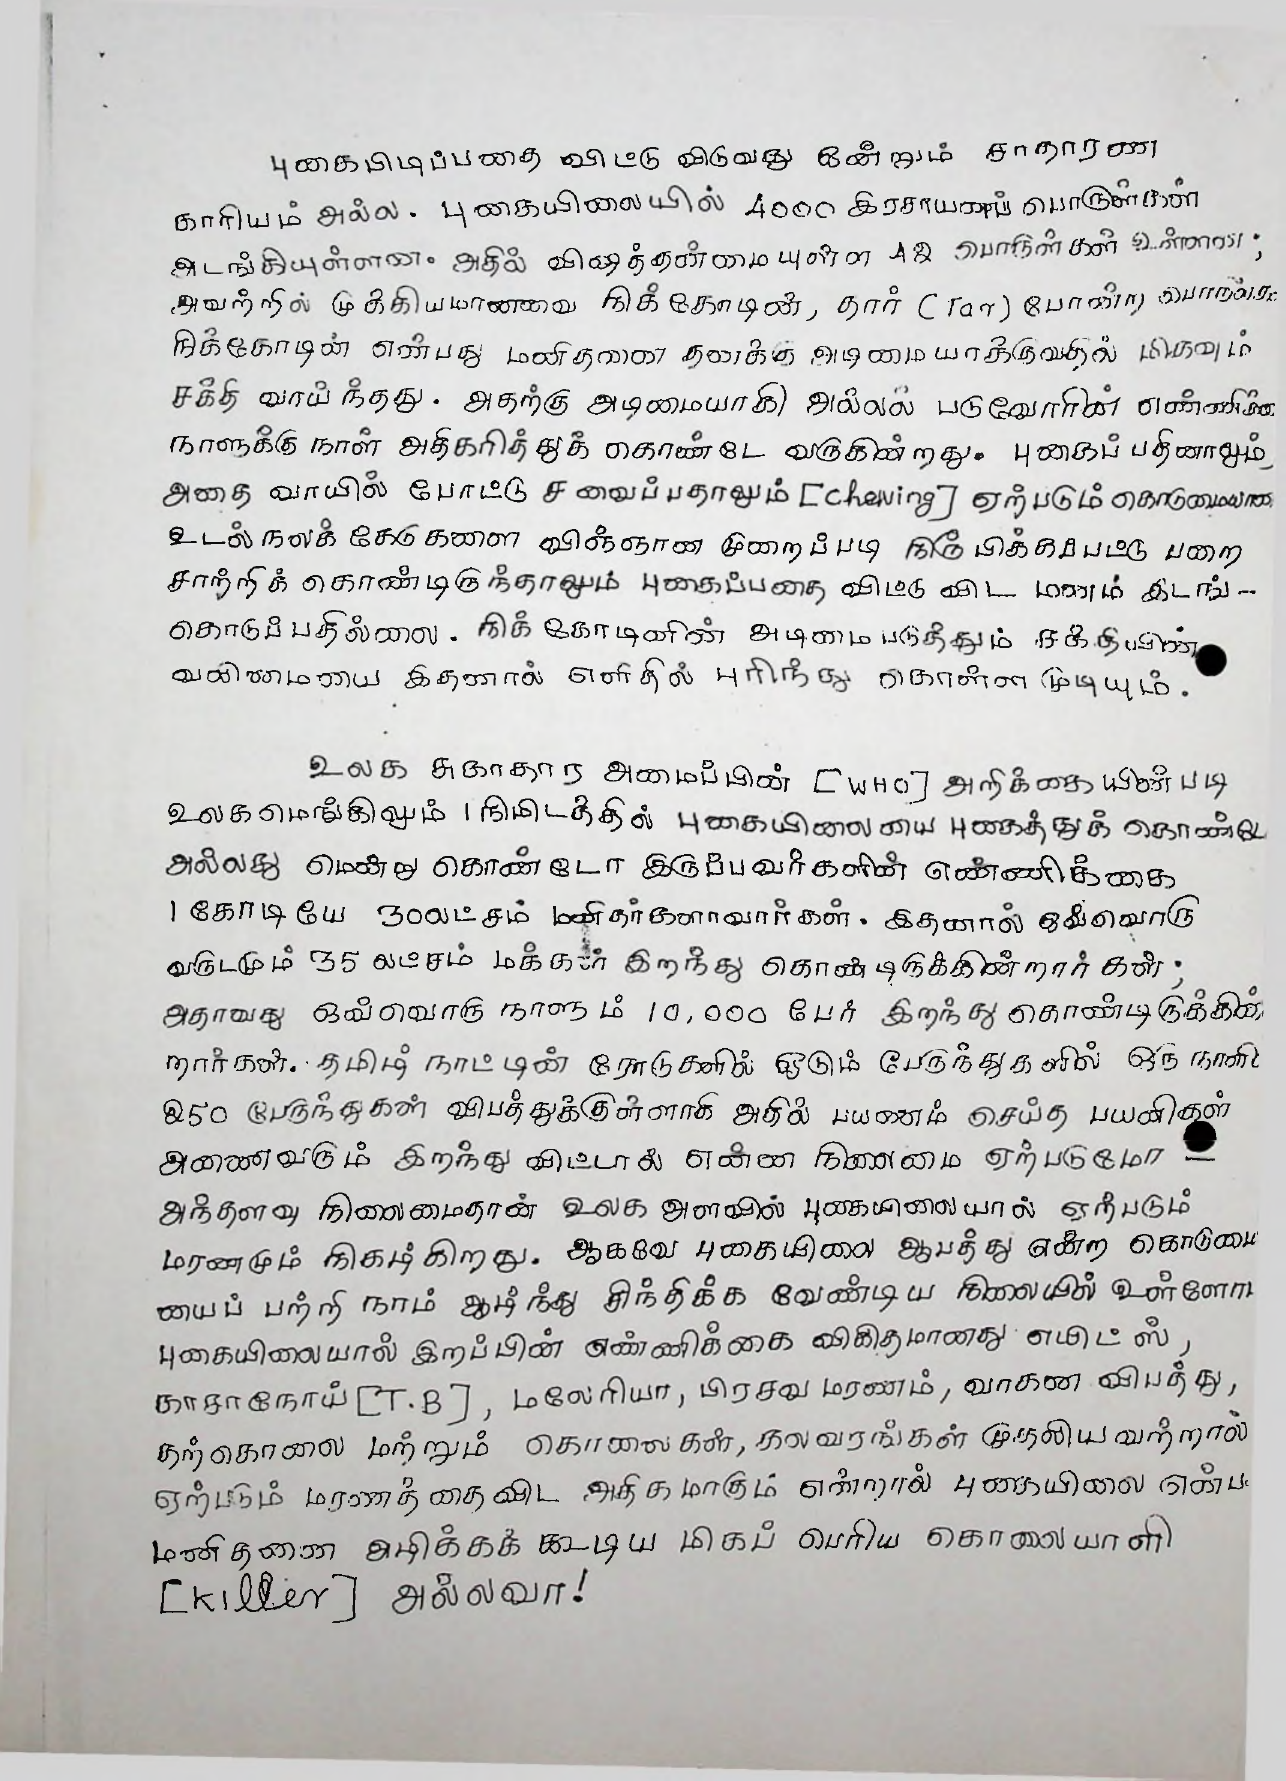 புகைபிடிப்பதை விட்டு விடுவது ஒன்றும் சாதாரண
காரியம் அல்ல. புகையிலையில் 4000 இரசாயணப் பொருள்கள்
அடங்கியுள்ளன. அதில் விஷத்தன்மையுள்ள 42 பொருள்கள் உள்ளன;
அவற்றில் முக்கியமானவை நிக்கோடின், தார் (Tar) போன்ற
நிக்கோடின் என்பது மனிதனை தனக்கு அடிமையாக்குவதில் மிகவும்
சக்தி வாய்ந்தது. அதற்கு அடிமையாகி அல்லல் படுவோரின்
நாளுக்கு நாள் அதிகரித்துக் கொண்டே வருகின்றது. புகைப் பதினாலும்,
அதை வாயில் போட்டு சுவைப்பதாலும் [chewing] ஏற்படும்
உடல்நலக் கேடுகளை விஞ்ஞான முறைப்படி நிரூபிக்கப்பட்டு பறை
சாற்றிக் கொண்டிருந்தாலும் புகைப்பதை விட்டு விட மனம் இடங்-
கொடுப்பதில்லை. நிக்கோடினின் அடிமைபடுத்தும் சக்தியின்
வலிமையை இதனால் எளிதில் புரிந்து கொள்ள முடியும்.
உலக சுகாதார அமைப்பின் [WHO] அறிக்கையின்படி
உலகமெங்கிலும் 1 நிமிடத்தில் புகையிலையை புகைத்துக் கொண்டே
அல்லது மென்று கொண்டோ இருப்பவர்களின் எண்ணிக்கை
1 கோடியே 30லட்சம் மனிதர்களாவார்கள். இதனால் ஒவ்வொரு
வருடமும் 35 லட்சம் மக்கள் இறந்து கொண்டிருக்கின்றார்கள்;
அதாவது ஒவ்வொரு நாளும் 10,000 பேர் இறந்து கொண்டிருக்கின்
றார்கள். தமிழ் நாட்டின் ரோடுகளில் ஓடும் பேருந்துகளில் ஒரு
250 பேருந்துகள் விபத்துக்குள்ளாகி அதில் பயணம் செய்த பயணிகள்
அணைவரும் இறந்து விட்டால் என்ன நிலைமை ஏற்படுமோ –
அந்தளவு நிலைமைதான் உலக அளவில் புகையிலையால் ஏற்படும்
மரணமும் நிகழ்கிறது. ஆகவே புகையிலை ஆபத்து என்ற கொடுமை
யைப் பற்றி நாம் ஆழ்ந்து சிந்திக்க வேண்டிய நிலையில்
புகையிலையால் இறப்பின் எண்ணிக்கை விகிதமானது எயிட்ஸ்,
காசநோய் [T.B], மலேரியா, பிரசவ மரணம், வாகன விபத்து,
தற்கொலை மற்றும் கொலைகள், கலவரங்கள் முதலியவற்றால்
ஏற்படும் மரணத்தைவிட அதிகமாகும் என்றால் புகையிலை
மனிதனை அழிக்கக் கூடிய மிகப் பெரிய கொலையாளி
[killer] அல்லவா!